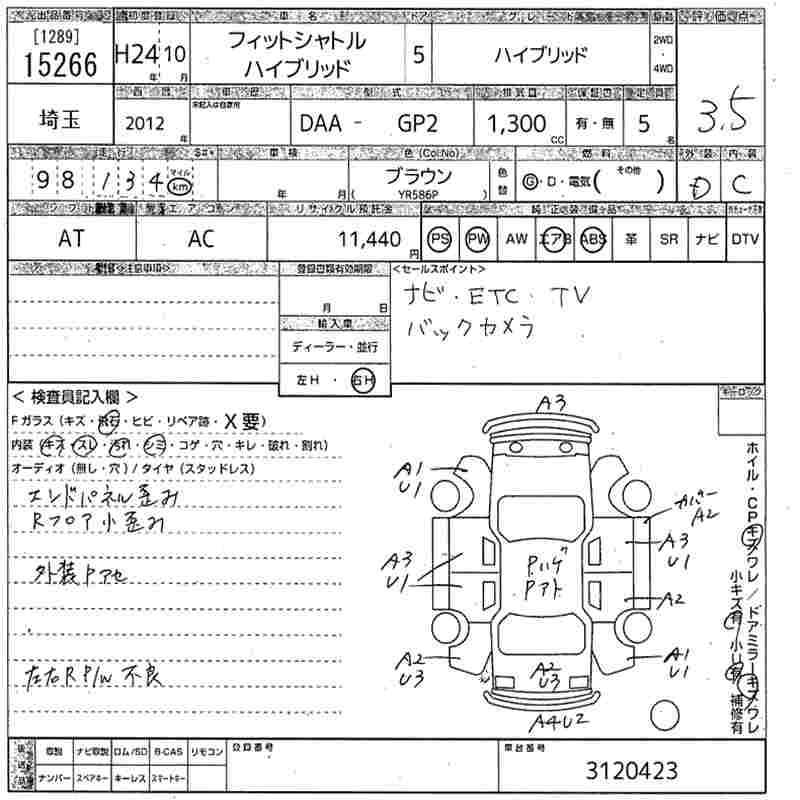 出品番号 初度登録 車名 ドア グレード 車歴 評価点
[1289]
15266 H24 年 10 月 フィットシャトル ハイブリッド 5 ハイブリッド 2WD・4WD 3.5
埼玉
2012 年 未記入は自家用 型式 DAA - GP2 排気量 1,300 CC 保証書 有・無 定員 5 名
走行 車検 色(Col.No) 燃料 その他 外装 内装
98,134 マイル km 年 月 ブラウン ( YR586P ) 色替 G・D・電気( ) D C
シフト エアコン リサイクル預託金 純正装備品
AT AC 11,440 円 PS PW AW エアB ABS 革 SR ナビ DTV
登録書類有効期限 <セールスポイント>
月 日 ナビ・ETC・TV
輸入車 バックカメラ
ディーラー・並行
左H・右H
< 検査員記入欄 > キーロック
Fガラス(キズ・飛石・ヒビ・リペア跡・X要)
内装(キズ・スレ・汚れ・シミ・コゲ・穴・キレ・破れ・割れ)
オーディオ(無し・穴)/タイヤ(スタッドレス)
エンドパネル歪み
Rフロア小歪み
外装Pアセ
左右R P/W 不良
A3
A1
U1
カバー
A2
A3
U1
A3
U1
PハゲPアト
A2
A2
U3
A2
U3
A1
U1
A4U2
ホイル・CPキズワレ/ドアミラーキズワレ
小キズ有 小U有 補修有
後送品 取説 ナビ取説 ロム/SD B-CAS リモコン 登録番号 車台番号
ナンバー スペアキー キーレス スマートキー 3120423